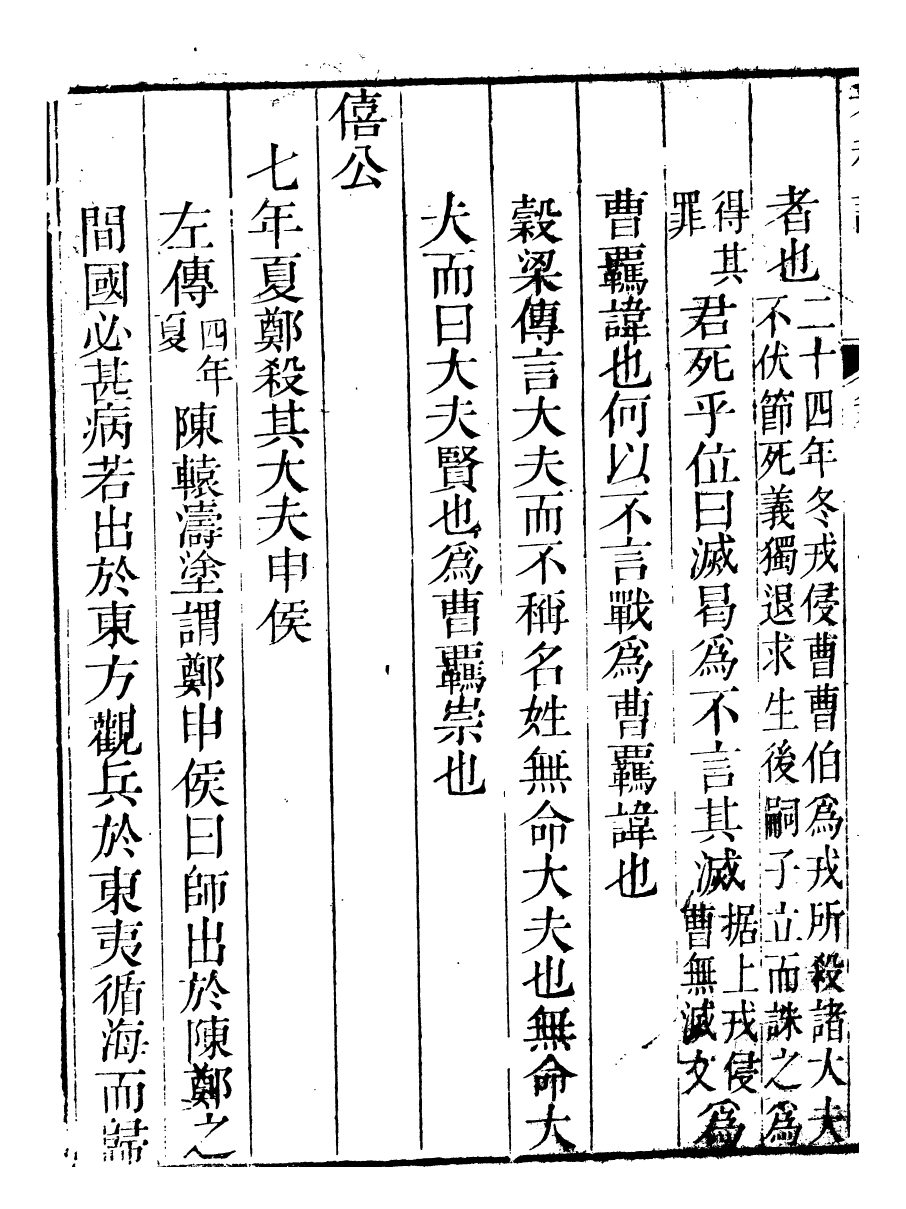 者也二十四年冬戎侵曹曹伯爲戎所殺諸大夫
不伏節死義獨退求生後嗣子立而誅之爲
得其
罪
君死乎位曰滅曷爲不言其滅据上戎侵
曹無滅文
爲
曹羈諱也何以不言戰爲曹羈諱也
穀梁傳言大夫而不稱名姓無命大夫也無命大
夫而曰大夫賢也爲曹羈崇也
僖公
七年夏鄭殺其大夫申侯
左傳四年
夏
陳轅濤塗謂鄭申侯曰師出於陳鄭之
間國必甚病若出於東方觀兵於東夷循海而歸